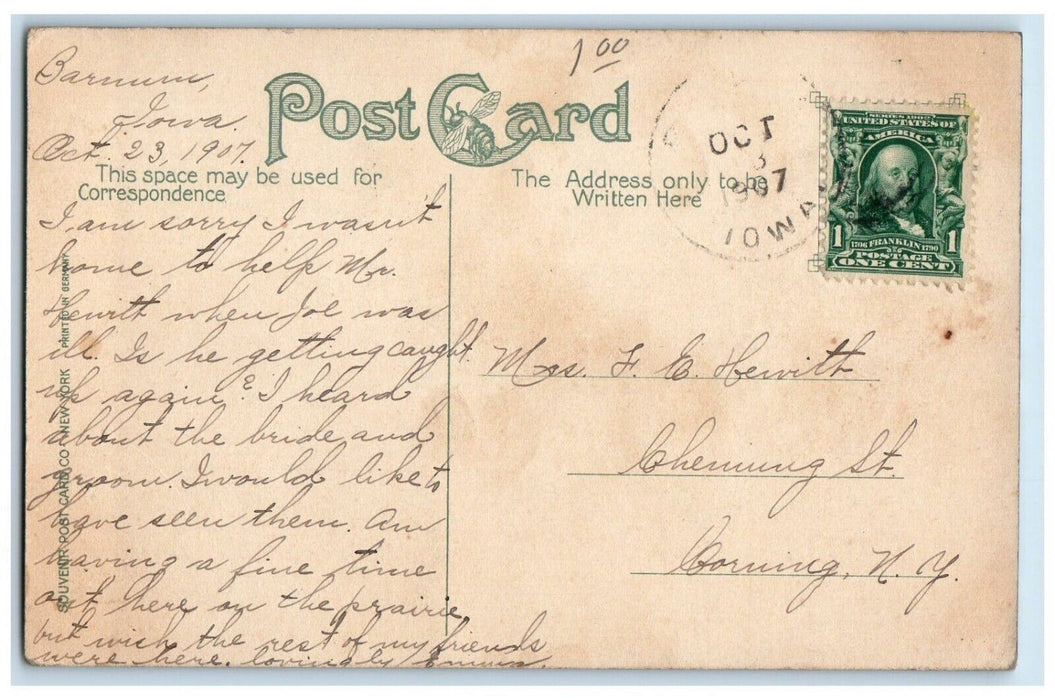 1 00
Barnum,
Iowa.
Oct. 23, 1907.
Post Card
This space may be used for
Correspondence
The Address only to be
Written Here
OCT
3
1907
IOWA
SERIES 1902
UNITED STATES OF
AMERICA
1 1706 FRANKLIN 1790 1
POSTAGE
ONE CENT
I am sorry I wasn't
home to help Mr.
Hewitt when Joe was
ill. Is he getting caught
up again? I heard
about the bride and
groom. I would like to
have seen them. Am
having a fine time
out here on the prairie
but wish the rest of my friends
were here. lovingly
Mrs. F. E. Hewitt
Chemung St.
Corning, N. Y.
SOUVENIR POST CARD CO. NEW YORK PRINTED IN GERMANY